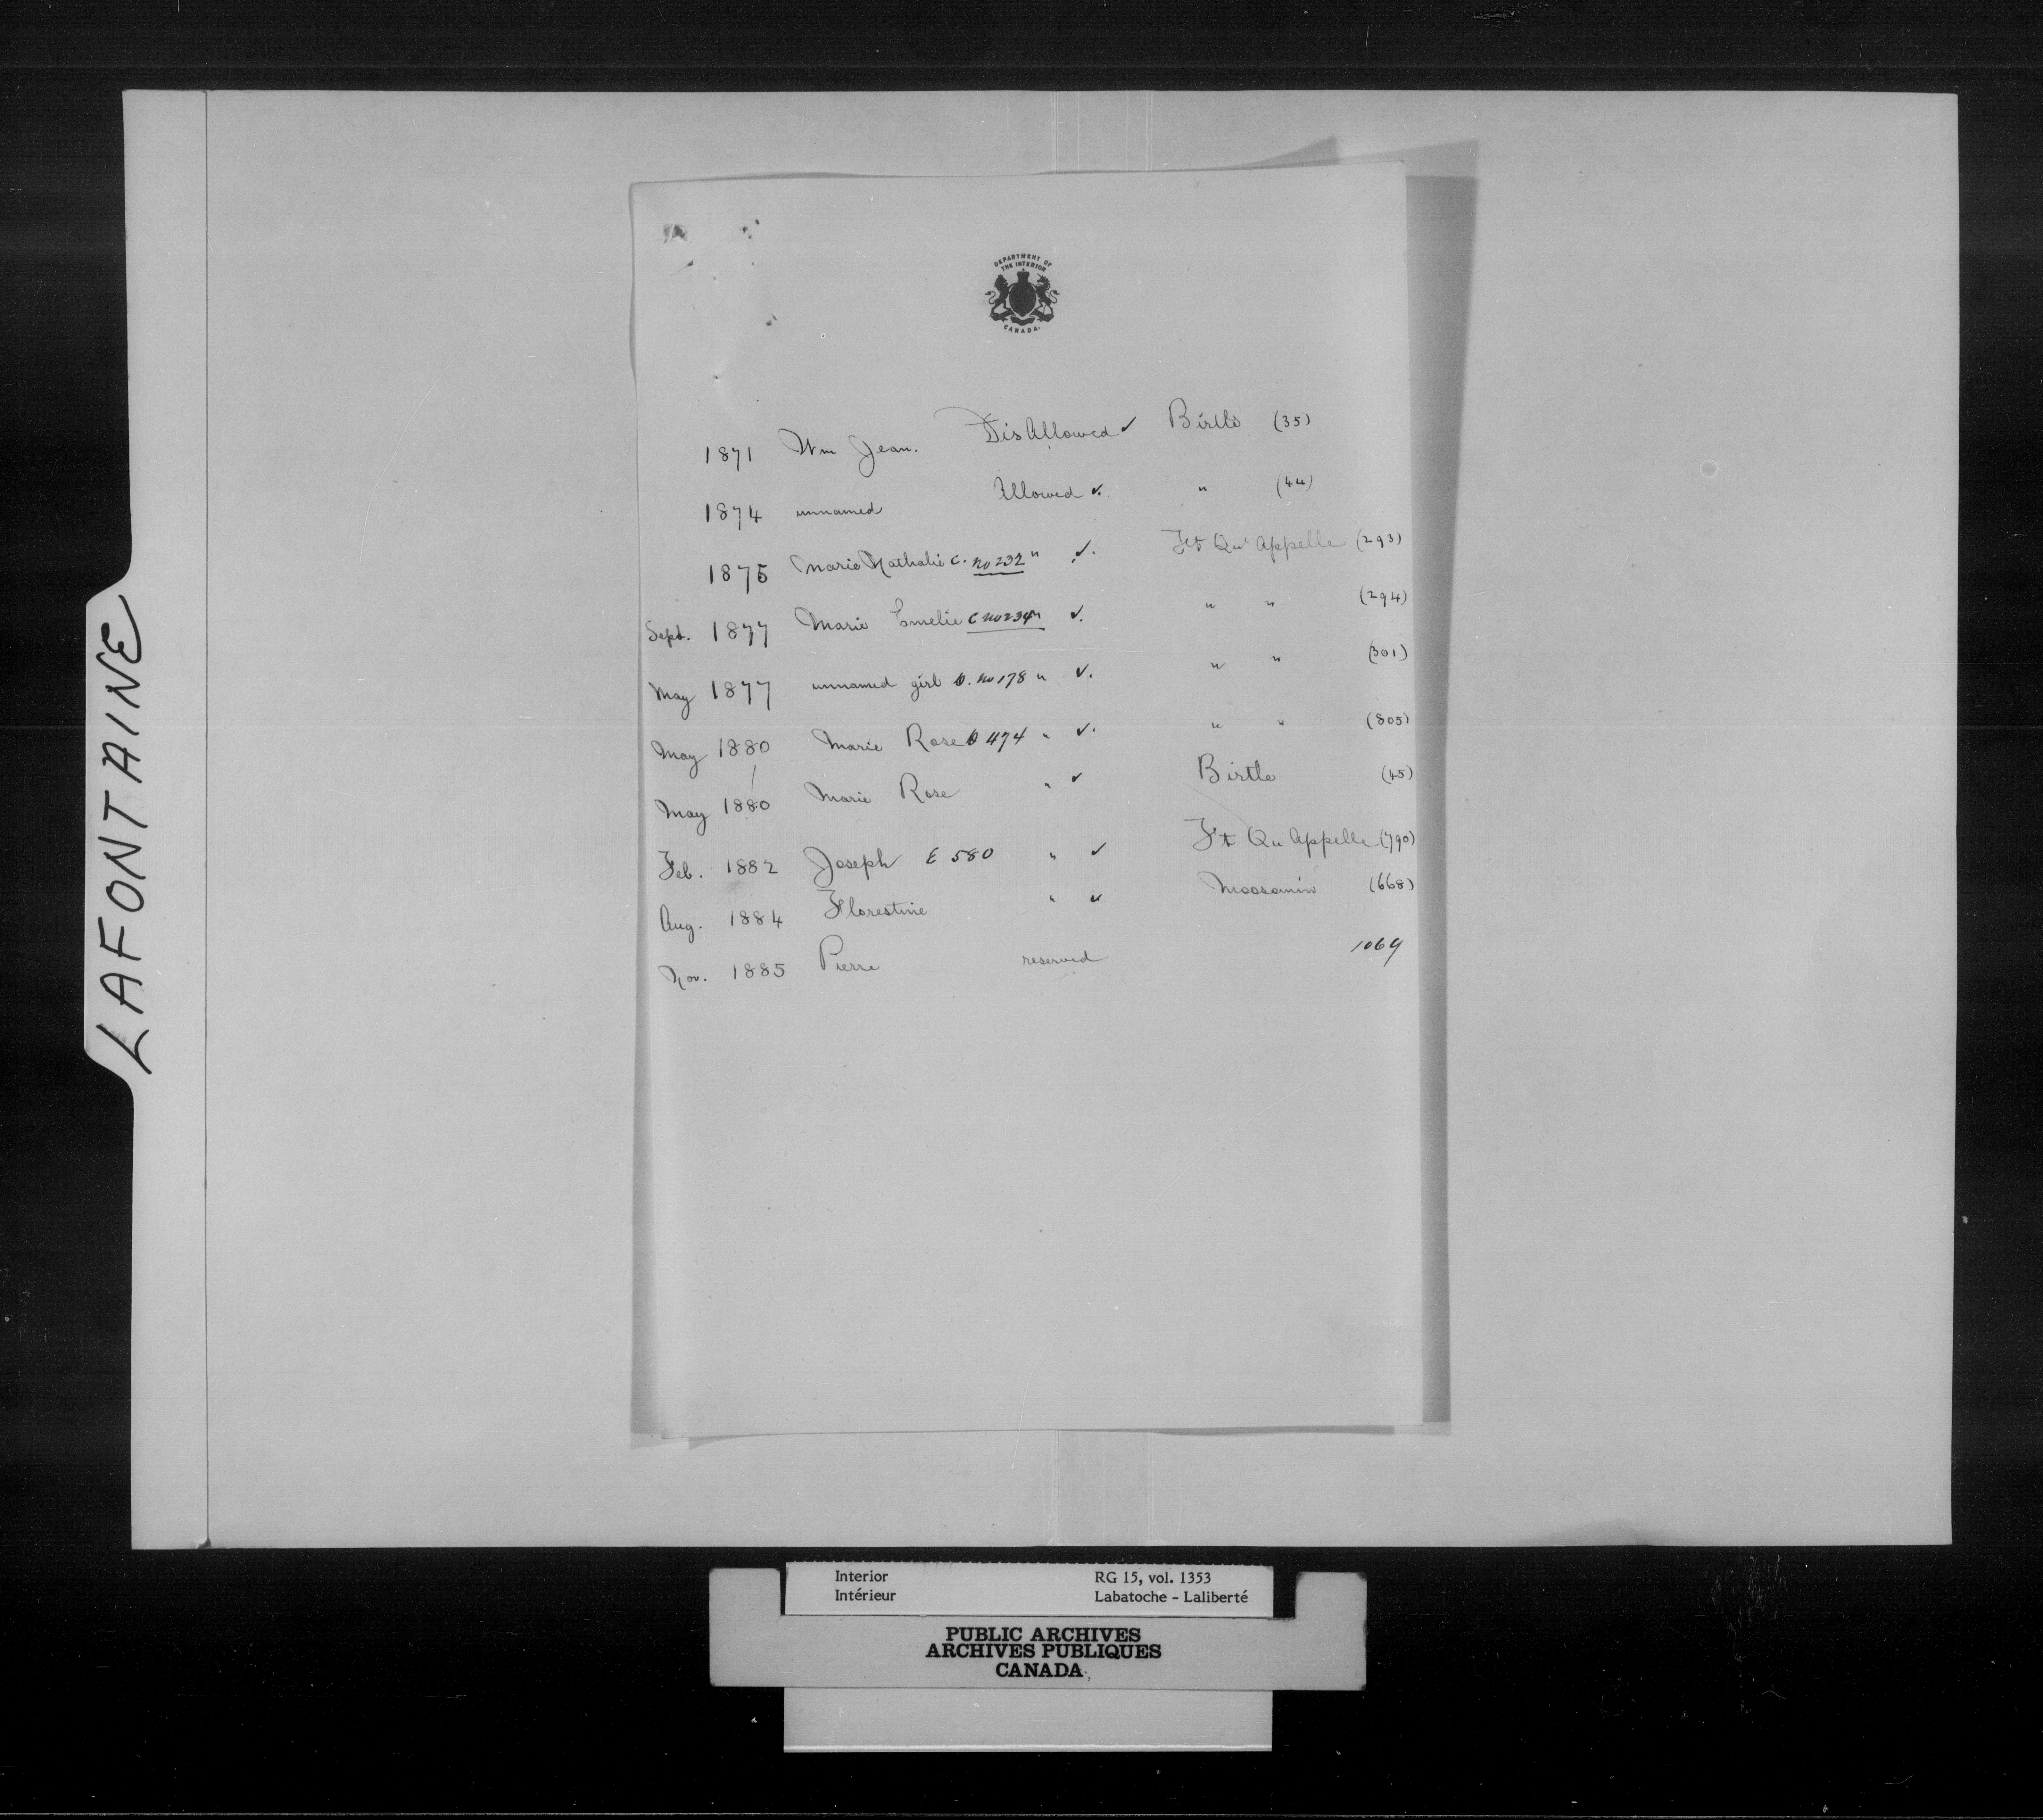 LAFONTAINE
DEPARTMENT OF
THE INTERIOR
CANADA.
1871 Wm Jean. DisAllowed ✓ Birtle (35)
1874 unnamed Allowed ✓. " (44)
1875 Marie Nathalie C. No 232 " ✓. Ft Qu'Appelle (293)
Sept. 1877 Marie Emelie C No 234 " ✓. " " (294)
May 1877 unnamed girl D. No 178 " ✓. " " (301)
May 1880 Marie Rose D 474 " ✓. " " (805)
May 1880 Marie Rose " ✓ Birtle (45)
Feb. 1882 Joseph E 580 " ✓ Ft Qu Appelle (790)
Aug. 1884 Florestine " ✓ Moosomin (668)
Nov. 1885 Pierre reserved 1069
Interior RG 15, vol. 1353
Intérieur Labatoche - Laliberté
PUBLIC ARCHIVES
ARCHIVES PUBLIQUES
CANADA